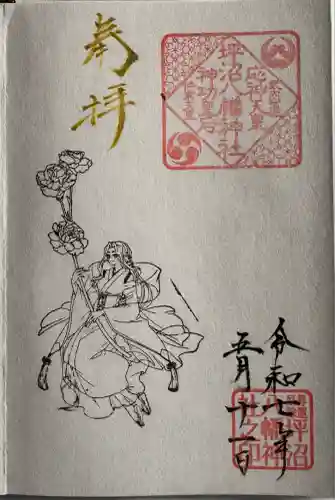 奉拝
坪沼八幡神社
応神天皇
神功皇后
令和七年
五月十一日
坪沼
八幡神
社之印